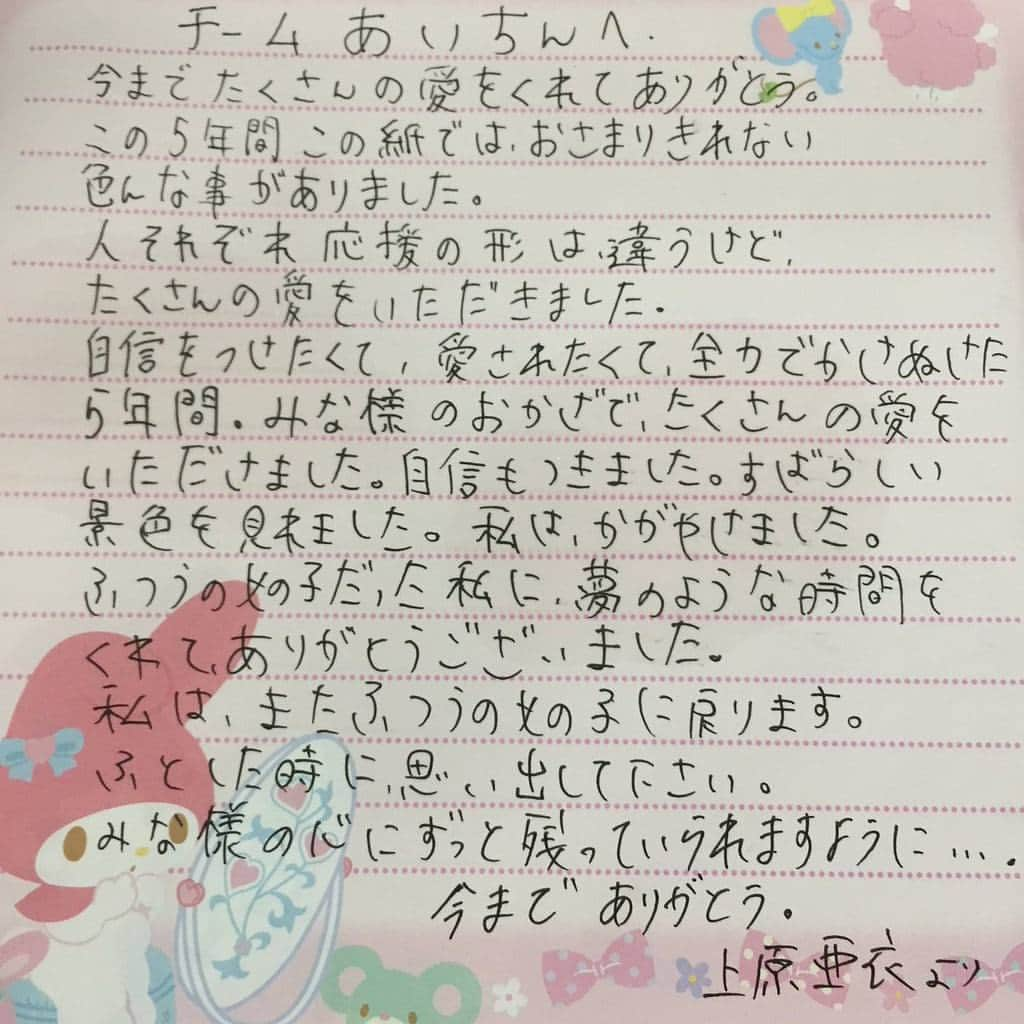 チーム あいちんへ.
今まで たくさんの愛をくれて ありがとう。
この5年間 この紙では、おさまりきれない
色んな事がありました。
人それぞれ 応援の形は、違うけど、
たくさんの愛をいただきました.
自信をつけたくて、愛されたくて、全力でかけぬけた
5年間。みな様のおかげで、たくさんの愛を
いただけました。自信もつきました。すばらしい
景色を見れました。私は、かがやけました。
ふつうの女の子だった私に、夢のような時間を
くれて、ありがとうございました。
私は、またふつうの女の子に戻ります。
ふとした時に、思い出して下さい。
みな様の心にずっと残っていられますように….
今まで ありがとう。
上原亜衣より